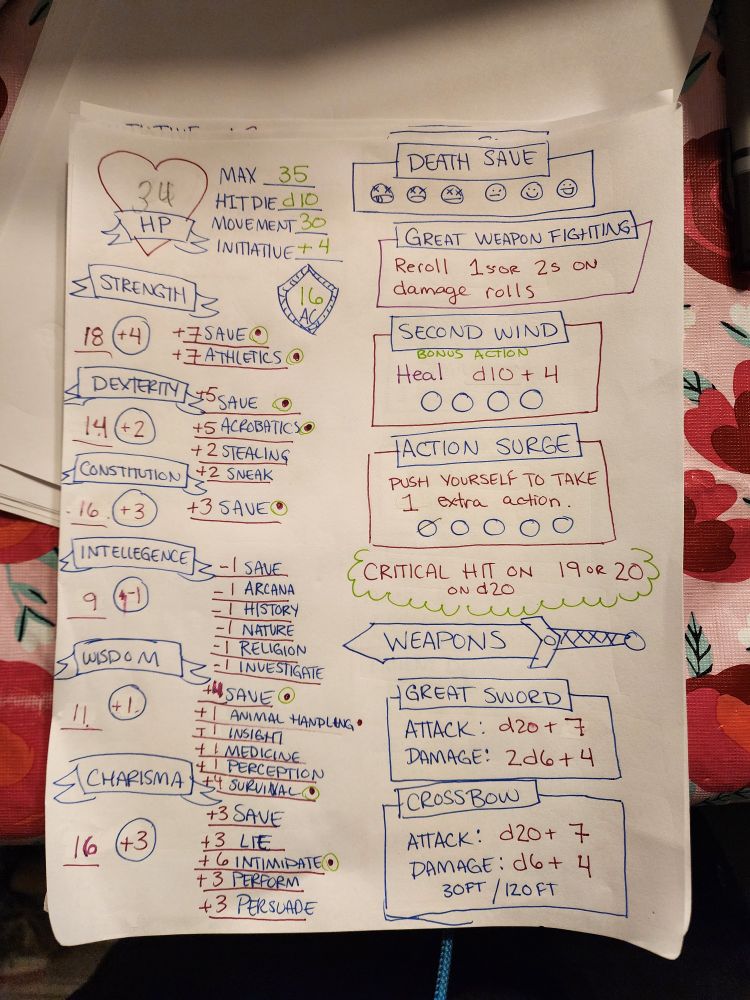 34
HP
MAX 35
HIT DIE d10
MOVEMENT 30
INITIATIVE +4
16
AC
STRENGTH
18 +4
+7 SAVE
+7 ATHLETICS
DEXTERITY
14 +2
+5 SAVE
+5 ACROBATICS
+2 STEALING
+2 SNEAK
CONSTITUTION
16 +3
+3 SAVE
INTELLEGENCE
9 -1
-1 SAVE
-1 ARCANA
-1 HISTORY
-1 NATURE
-1 RELIGION
-1 INVESTIGATE
WISDOM
11 +1
+4 SAVE
+1 ANIMAL HANDLING
+1 INSIGHT
+1 MEDICINE
+1 PERCEPTION
+4 SURVIVAL
CHARISMA
16 +3
+3 SAVE
+3 LIE
+6 INTIMIDATE
+3 PERFORM
+3 PERSUADE
DEATH SAVE
GREAT WEAPON FIGHTING
Reroll 1s or 2s ON
damage rolls
SECOND WIND
BONUS ACTION
Heal d10 + 4
ACTION SURGE
PUSH YOURSELF TO TAKE
1 extra action.
CRITICAL HIT ON 19 OR 20
ON d20
WEAPONS
GREAT SWORD
ATTACK: d20 + 7
DAMAGE: 2d6 + 4
CROSSBOW
ATTACK: d20 + 7
DAMAGE: d6 + 4
30FT / 120FT